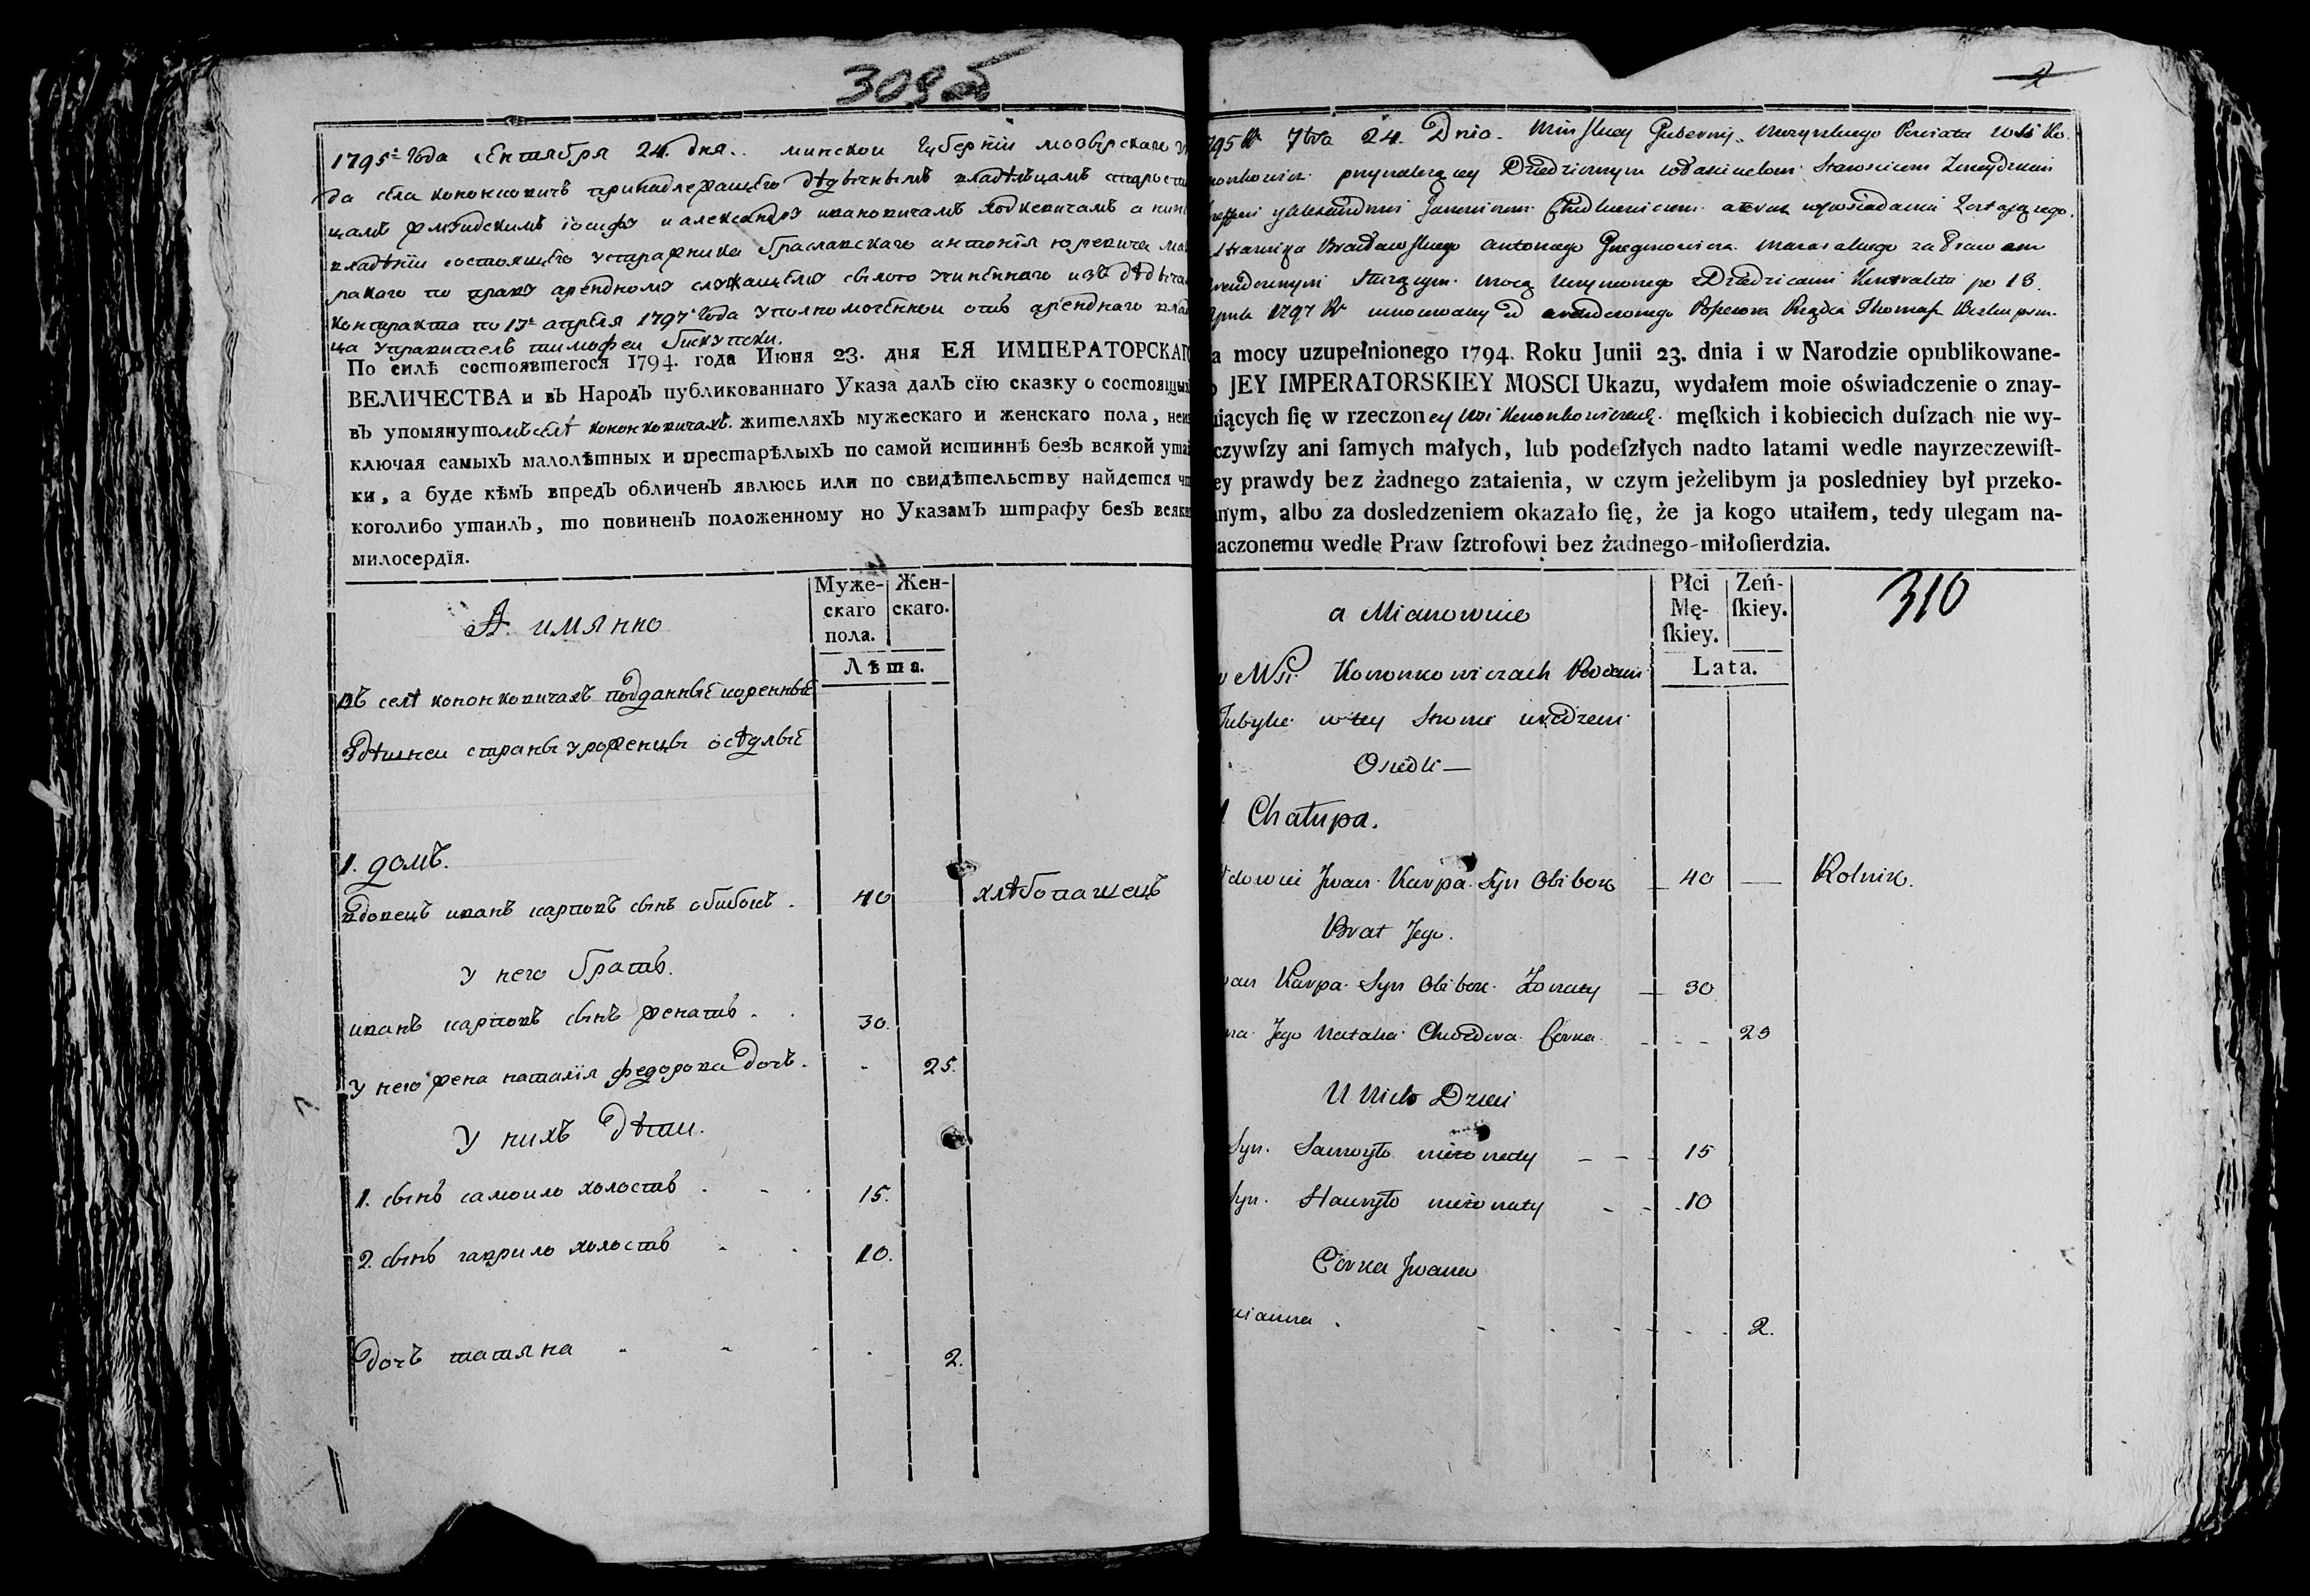 309об
1795г года сентября 24. дня.. минской губернии мозырскаго
да села кононкович принадлежащего дедычнымъ владельцамъ старости
цамъ жмудскимъ иосифу и александру ивановичамъ ходкевичамъ а ныне
владении состоящего у стражника браславскаго антония юревича
ракаго по праву арендному служащему силою учиненнаго изъ дедыча
контракта по 13е апреля 1797 года уполномоченной отъ арендного влад
ца управитель тимофей бискупски.
По силѣ состоявшегося 1794. года Июня 23. дня ЕЯ ИМПЕРАТОРСКАГ
ВЕЛИЧЕСТВА и вЪ НародЪ публикованнаго Указа далЪ сїю сказку о состоящих
вЪ упомянутомъ селѣ кононковичахъ. жителяхЪ мужескаго и женскаго пола, неис
ключая самыхЪ малолѣтных и престарѣлыхЪ по самой истиннѣ безЪ всякой утай
ки, а буде кѣмЪ впредЪ обличенЪ явлюсь или по свидѣтельству найдется чт
коголибо утаилЪ, то повиненЪ положенному по УказамЪ штрафу безЪ всяка
милосердїя.
А имянно
Муже-
скаго
пола.
Жен-
скаго.
Лѣта.
въ селѣ кононковичахъ подданные коренные
здѣшней страны уроженцы осѣдлые
1. домъ.
вдовецъ иванъ карповъ сынъ обибокъ . 40 хлѣбопашецъ
у него братъ.
иванъ карповъ сынъ женатъ . . 30.
у него жена наталïя федорова дочь . - 25.
у нихъ дѣти.
1. сынъ самойло холостъ . - . 15.
2. сынъ гаврило холостъ - . 10.
дочь татяна - - . . 2.
2
795 Rr 7bra 24. Dnia. Minskiey Gubernij. Mozyrskiego Powiatu wsi Ko.
nonkowicz przynależącey Dziedzicznym właścicielom Starościcom Żmuydzkim
Jozefowi y Alexandrowi Janowiczom Chodkiewiczom a teraz w posiadaniu zostającego.
Strażnika Brasławskiego Antoniego Jurewicza
arendownym służącym mocą uczynionego z Dziedzicami Kontraktu po 13.
Apryla 1797 Ru umocowany od arendownego Rządca Thomasz Biskupski.
a mocy uzupełnionego 1794. Roku Junii 23. dnia i w Narodzie opublikowane-
o JEY IMPERATORSKIEY MOSCI Ukazu, wydałem moie oświadczenie o znay-
uiących ſię w rzeczoney wsi Kononkowiczach. męſkich i kobiecich duſzach nie wy-
czywſzy ani ſamych małych, lub podeſzłych nadto latami wedle nayrzeczewiſt-
ey prawdy bez żadnego zataienia, w czym jeżelibym ja posledniey był przeko-
anym, albo za dosledzeniem okazało ſię, że ja kogo utaiłem, tedy ulegam na-
aczonemu wedle Praw ſztrofowi bez żadnego miłoſierdzia.
a Mianowicie
Płci
Mę-
ſkiey.
Zeń-
ſkiey.
Lata.
310
we Wsi Kononkowiczach Poddani
w tey Stronie urodzeni
Osiedli —
1 Chałupa.
Wdowiec Jwan Karpa Syn Obibok — 40 — Rolnik.
Brat Jego.
wan Karpa Syn Obibok Żonaty — 30
na Jego Natalia Chwedora Corka. - - - 25
U Nich Dzieci
Syn. Samoyło nieżonaty - - - 15
Syn. Hauryło nieżonaty - - - 10
Corka Jwana
cianna . - . - - - 2.